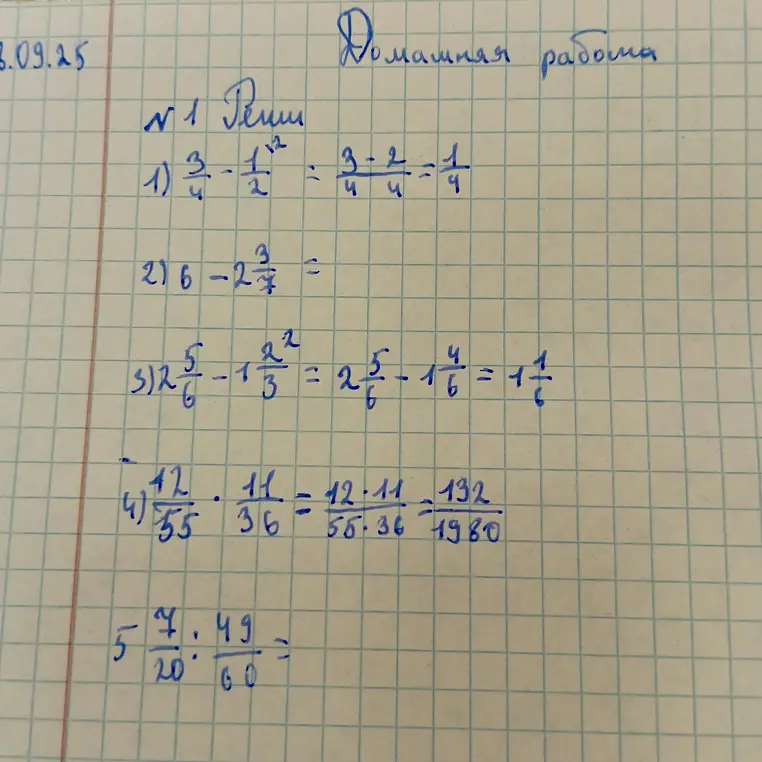 3.09.25
Домашняя работа
№ 1 Реши
1) 3/4 - 1/2 ² = 3 - 2 / 4 4 = 1/4
2) 6 - 2 3/7 =
3) 2 5/6 - 1 2/3 ² = 2 5/6 - 1 4/6 = 1 1/6
4) 12/55 · 11/36 = 12·11/55·36 = 132/1980
5 7/20 : 49/60 =